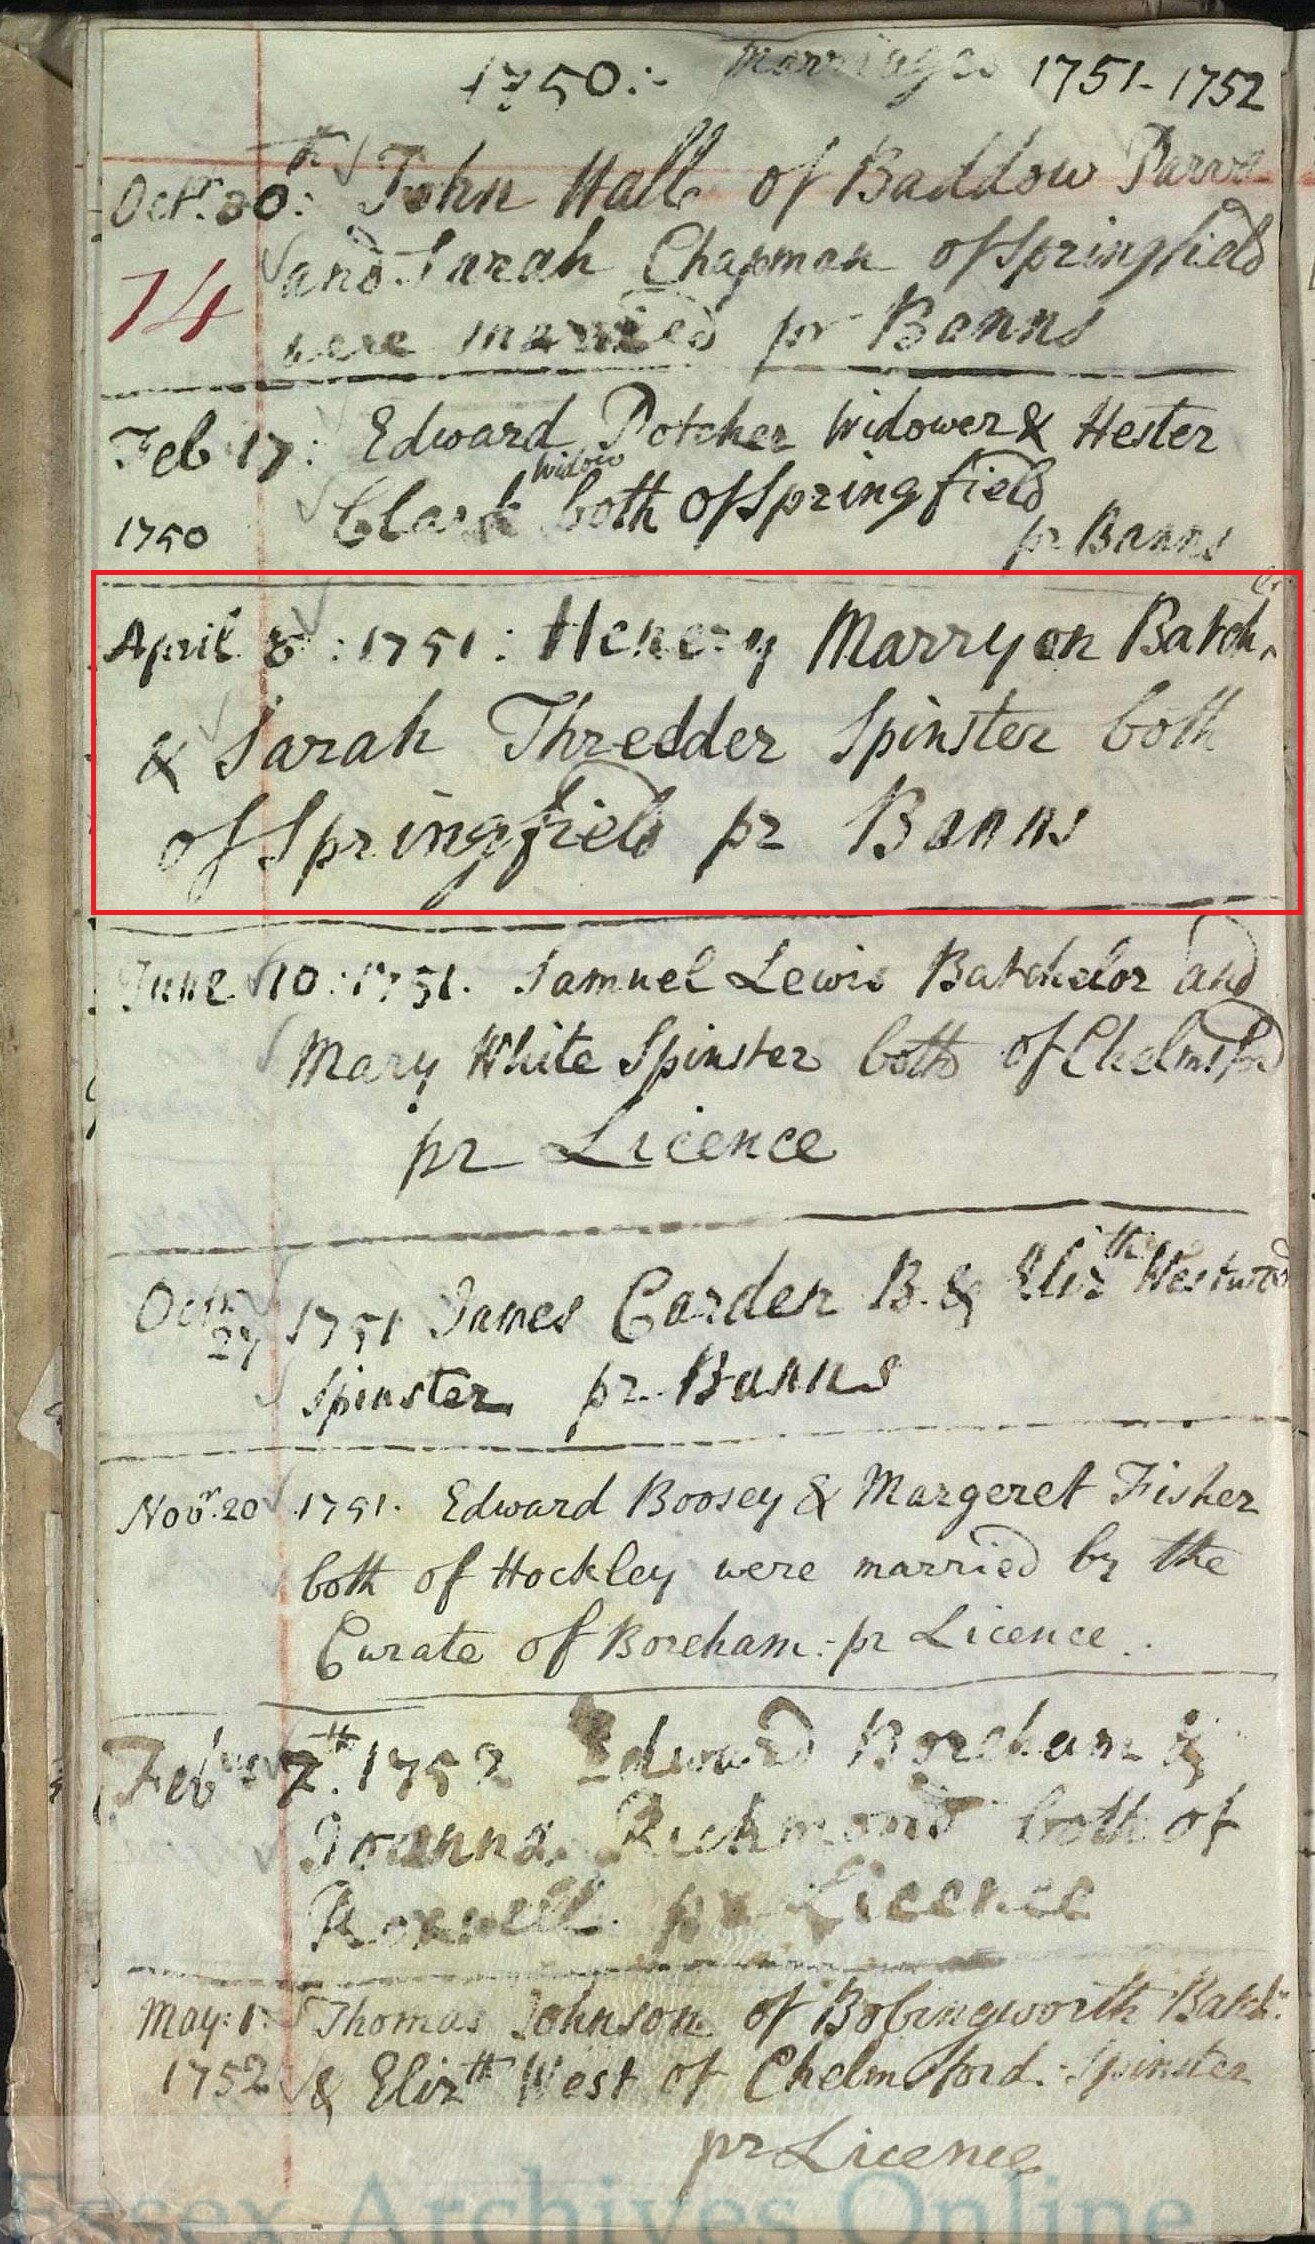 1750:- Marriages 1751-1752
Octr. 30th: John Hall of Baddow Parva
14 and Sarah Chapman of Springfield
were married pr Banns
Feb 17: Edward Potcher Widower & Hester
Widow
1750 Clark both of Springfield
pr Banns
April 8: 1751: Henery Marryon Batchr
& Sarah Thredder Spinster both
of Springfield pr Banns
June 10: 1751. Samuel Lewis Batchelor and
Mary White Spinster both of Chelmsfd
pr Licence
Octr 27 1751 James Carder B. & Elizth Westwood
Spinster pr Banns
Novr. 20 1751. Edward Boosey & Margeret Fisher
both of Hockley were married by the
Curate of Boreham:- pr Licence.
7th. 1752 Edward Boreham &
Joanna Richmond both of
Roxwell pr Licence
May: 1 Thomas Johnson of Bobingworth Batchr
1752 & Elizth West of Chelmsford:- Spinster
pr Licence
Essex Archives Online